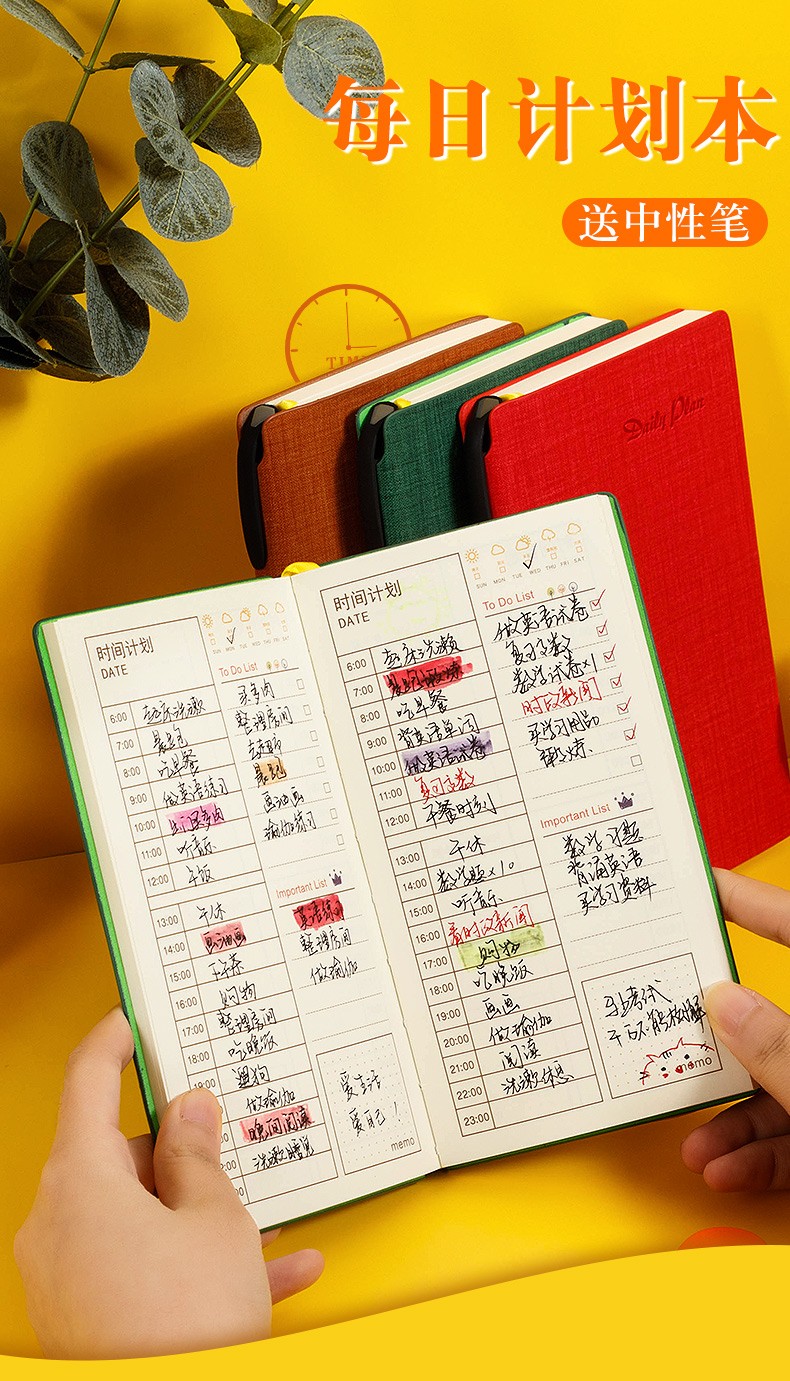 每日计划本
送中性笔
TIME
Daily Plan
时间计划
DATE
SUN MON TUE WED THU FRI SAT
To Do List
6:00 起床洗漱
7:00 晨跑
8:00 吃早餐
9:00 做英语练习
10:00
11:00 听音乐
12:00 午饭
13:00 午休
14:00
15:00 下午茶
16:00 购物
17:00 整理房间
18:00 吃晚饭
19:00 遛狗
做瑜伽
晚间阅读
洗漱睡觉
买多肉
整理房间
晨跑
画油画
瑜伽练习
Important List
英语练习
整理房间
做瑜伽
爱生活
爱自己！
memo
时间计划
DATE
SUN MON TUE WED THU FRI SAT
To Do List
6:00 起床洗漱
7:00 晨跑锻炼
8:00 吃早餐
9:00 背英语单词
10:00 做英语试卷
11:00 复习高数
12:00 午餐时刻
13:00 午休
14:00 数学题×10
15:00 听音乐
16:00 看时政新闻
17:00 购物
18:00 吃晚饭
19:00 画画
20:00 做瑜伽
21:00 阅读
22:00 洗漱休息
23:00
做英语试卷
复习高数
数学试卷×1
时政新闻
买学习用品
Important List
数学习题
背诵英语
买学习资料
马上考试
千万不能放松
memo